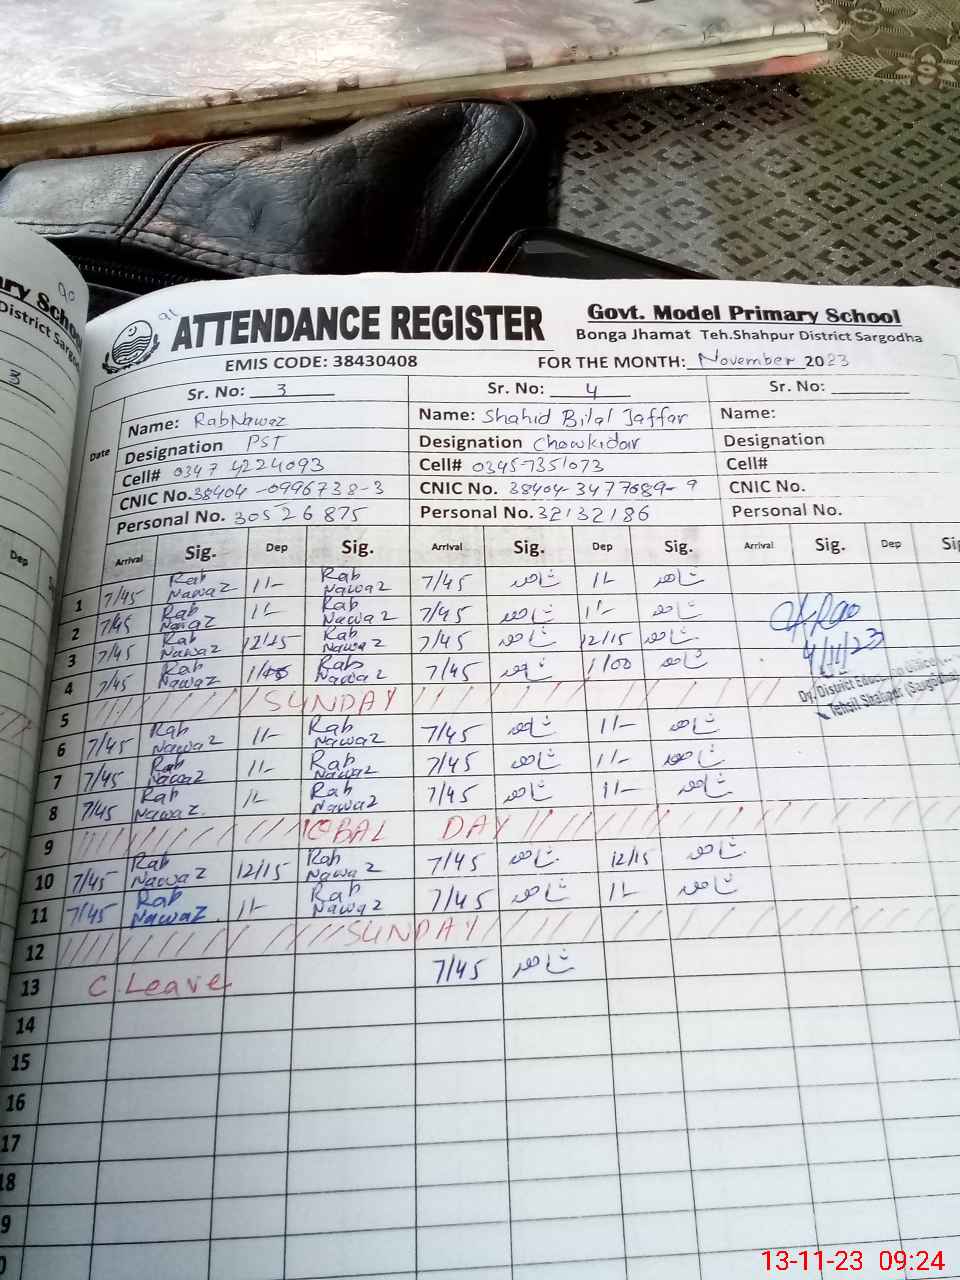 ary Scho
District Sargod
3
Dep
90
91
ATTENDANCE REGISTER
Govt. Model Primary School
Bonga Jhamat Teh.Shahpur District Sargodha
EMIS CODE: 38430408
FOR THE MONTH: November 2023
Sr. No: 3 Sr. No: 4 Sr. No:
Date
Name: RabNawaz Name: Shahid Bilal Jaffar Name:
Designation PST Designation Chowkidar Designation
Cell# 0347 4224093 Cell# 03457351073 Cell#
CNIC No. 38404-0996738-3 CNIC No. 38404-3477689-9 CNIC No.
Personal No. 30526875 Personal No. 32132186 Personal No.
Arrival Sig. Dep Sig. Arrival Sig. Dep Sig. Arrival Sig. Dep Sig
1 7/45 Rab Nawaz 1/- Rab Nawaz 7/45 شاھد 1/- شاھد
2 7/45 Rab Nawaz 1/- Rab Nawaz 7/45 شاھد 1/- شاھد
3 7/45 Rab Nawaz 12/15 Rab Nawaz 7/45 شاھد 12/15 شاھد
4 7/45 Rab Nawaz Rab Nawaz 7/45 شاھد 1/00 شاھد
4/11/23
Dy. District Education Officer
Tehsil Shahpur (Sargodha)
5 SUNDAY
6 7/45 Rab Nawaz 1/- Rab Nawaz 7/45 شاھد 1/- شاھد
7 7/45 Rab Nawaz 1/- Rab Nawaz 7/45 شاھد 1/- شاھد
8 7/45 Rab Nawaz 1/- Rab Nawaz 7/45 شاھد 1/- شاھد
9 IQBAL DAY
10 7/45 Rab Nawaz 12/15 Rab Nawaz 7/45 شاھد 12/15 شاھد
11 7/45 Rab Nawaz 1/- Rab Nawaz 7/45 شاھد 1/- شاھد
12 SUNDAY
13 C Leave 7/45 شاھد
14
15
16
17
18
9
0
13-11-23 09:24